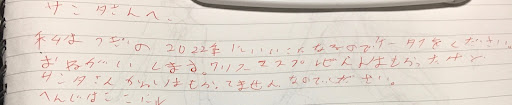 サンタさんへ、
私はつぎの2022年にいいこになるのでケータイをください。
おねがいします。クリスマスプレぜんとはもらったけど
サンタさんからはもらってませんなのでください。
へんじはここに↓